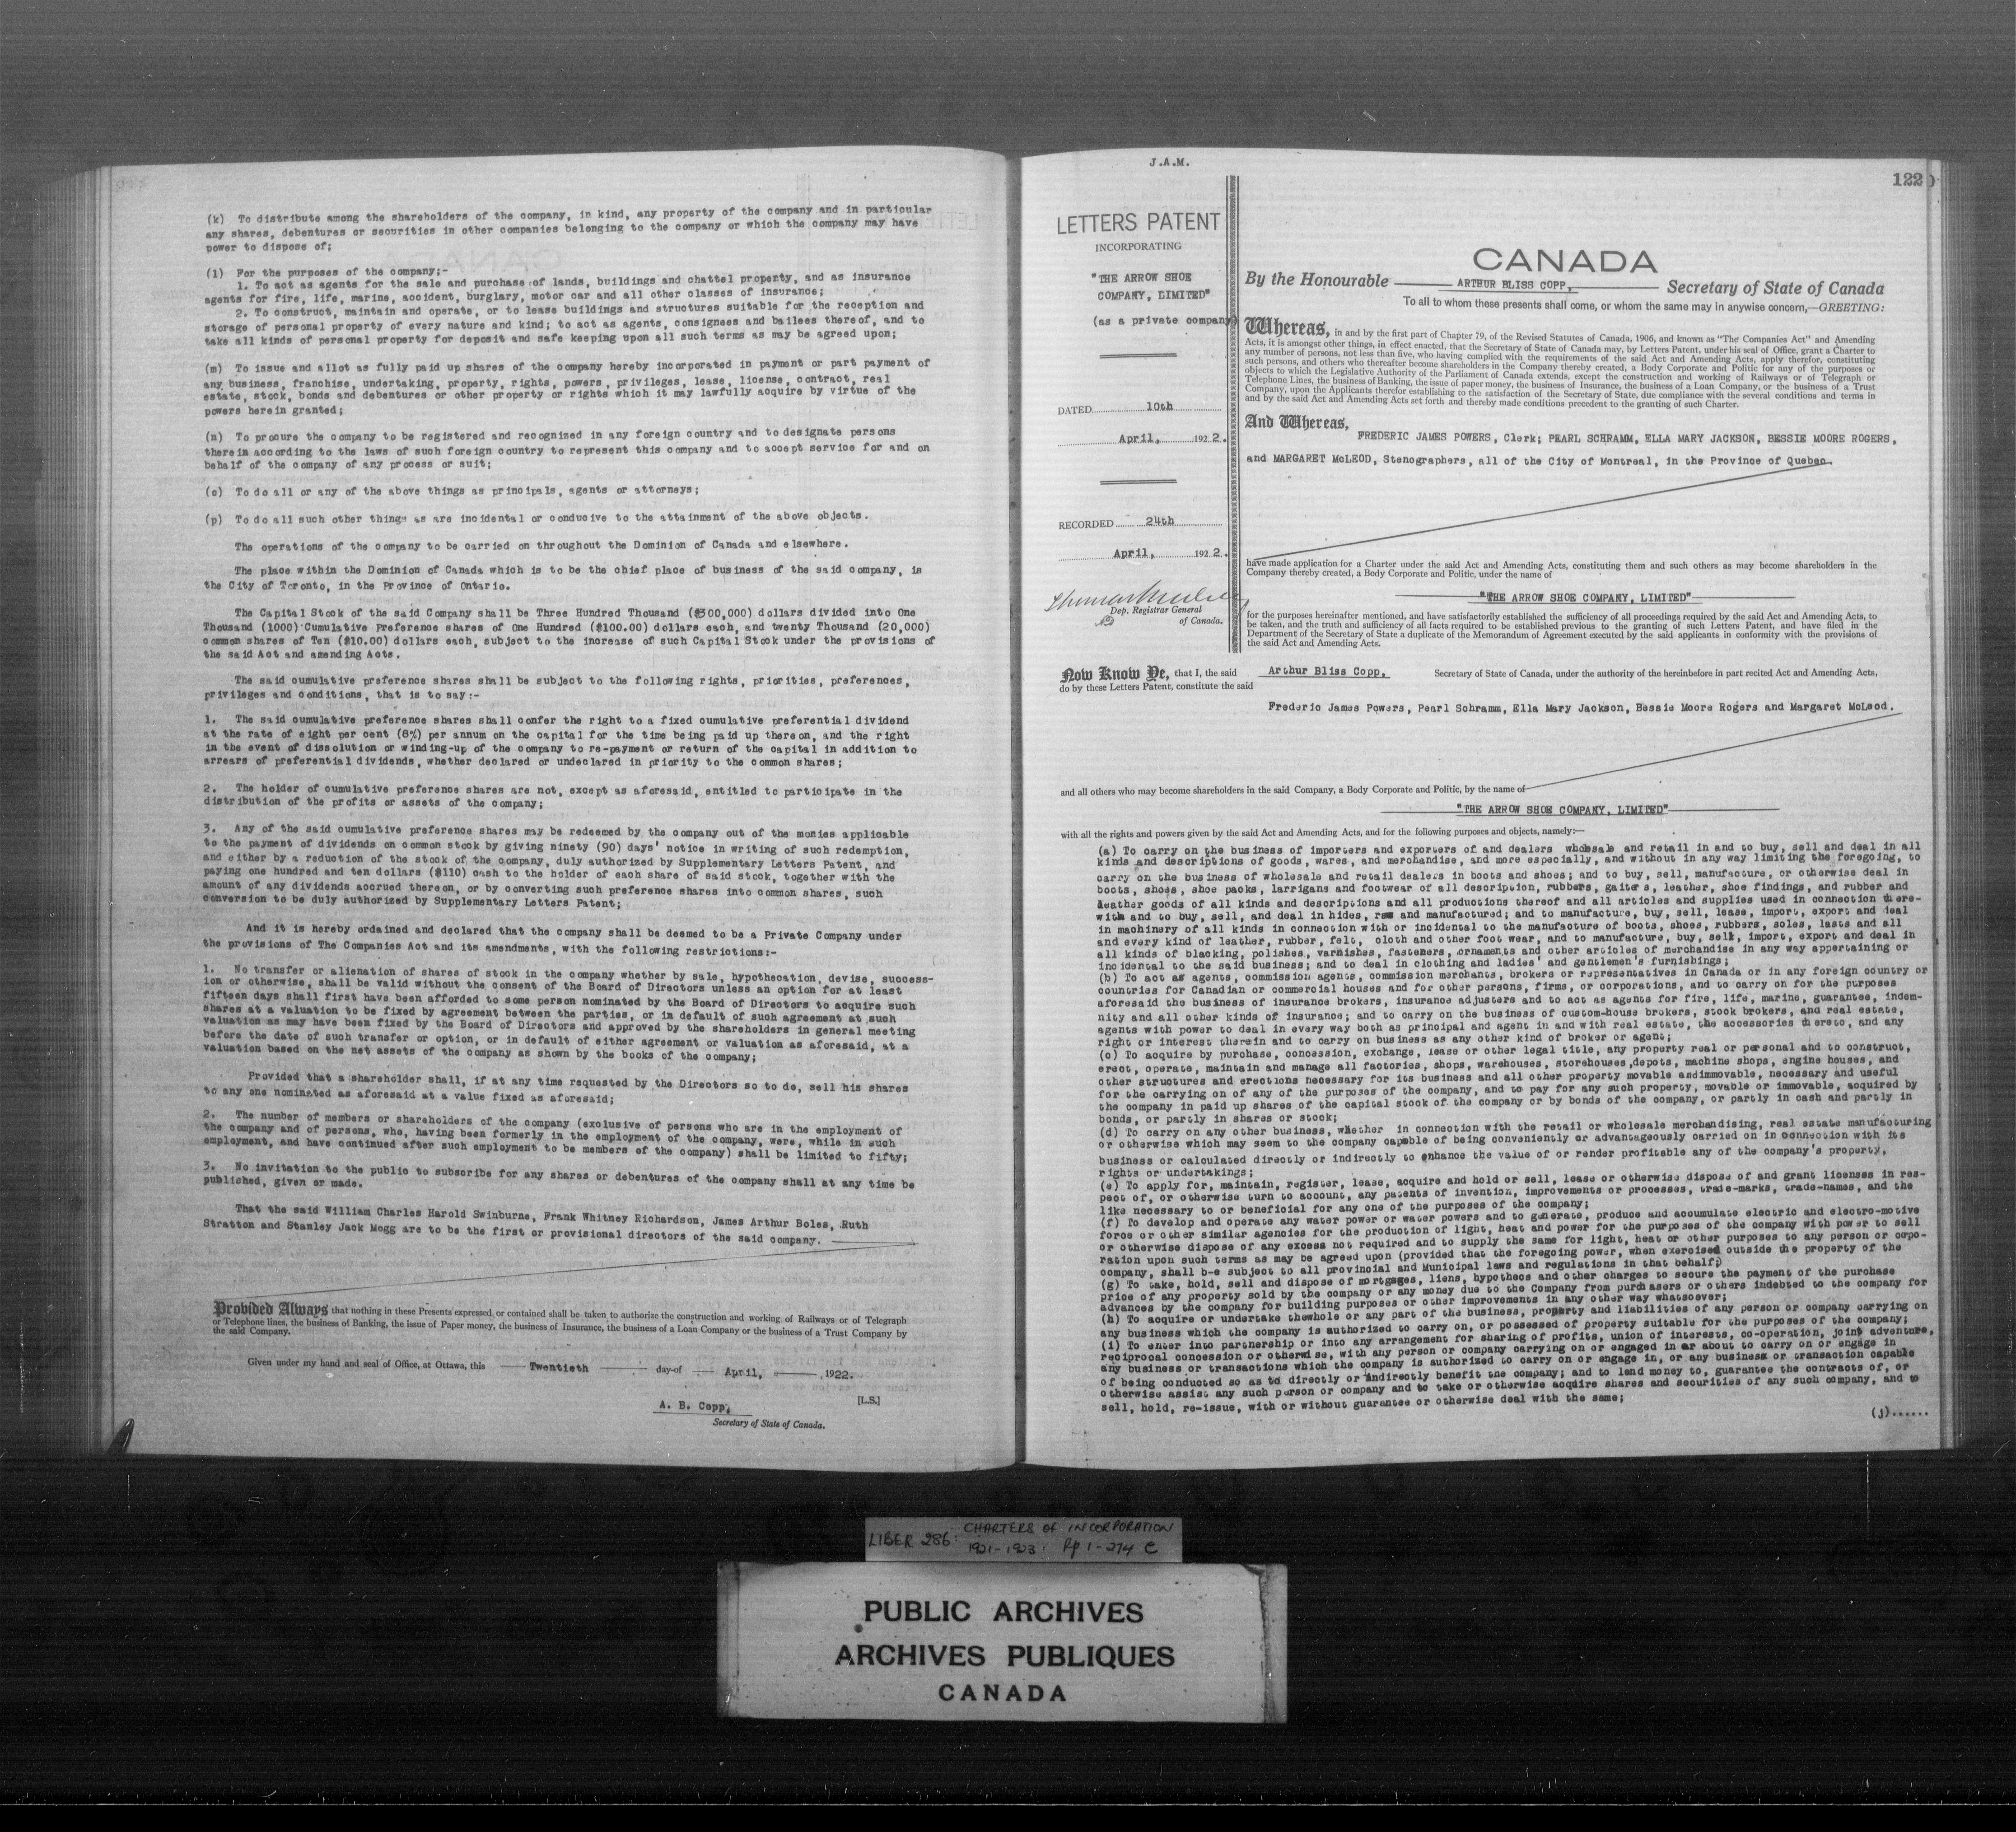 (k) To distribute among the shareholders of the company, in kind, any property of the company and in particular
any shares, debentures or securities in other companies belonging to the company or which the company may have
power to dispose of;
(l) For the purposes of the company;-
1. To act as agents for the sale and purchase of lands, buildings and chattel property, and as insurance
agents for fire, life, marine, accident, burglary, motor car and all other classes of insurance;
2. To construct, maintain and operate, or to lease buildings and structures suitable for the reception and
storage of personal property of every nature and kind; to act as agents, consignees and bailees thereof, and to
take all kinds of personal property for deposit and safe keeping upon all such terms as may be agreed upon;
(m) To issue and allot as fully paid up shares of the company hereby incorporated in payment or part payment of
any business, franchise, undertaking, property, rights, powers, privileges, lease, license, contract, real
estate, stock, bonds and debentures or other property or rights which it may lawfully acquire by virtue of the
powers herein granted;
(n) To procure the company to be registered and recognized in any foreign country and to designate persons
therein according to the laws of such foreign country to represent this company and to accept service for and on
behalf of the company of any process or suit;
(o) To do all or any of the above things as principals, agents or attorneys;
(p) To do all such other things as are incidental or conducive to the attainment of the above objects.
The operations of the company to be carried on throughout the Dominion of Canada and elsewhere.
The place within the Dominion of Canada which is to be the chief place of business of the said company, is
the City of Toronto, in the Province of Ontario.
The Capital Stock of the said Company shall be Three Hundred Thousand ($300,000) dollars divided into One
Thousand (1000) Cumulative Preference shares of One Hundred ($100.00) dollars each, and twenty Thousand (20,000)
common shares of Ten ($10.00) dollars each, subject to the increase of such Capital Stock under the provisions of
the said Act and amending Acts.
The said cumulative preference shares shall be subject to the following rights, priorities, preferences,
privileges and conditions, that is to say:-
1. The said cumulative preference shares shall confer the right to a fixed cumulative preferential dividend
at the rate of eight per cent (8%) per annum on the capital for the time being paid up thereon, and the right
in the event of dissolution or winding-up of the company to re-payment or return of the capital in addition to
arrears of preferential dividends, whether declared or undeclared in priority to the common shares;
2. The holder of cumulative preference shares are not, except as aforesaid, entitled to participate in the
distribution of the profits or assets of the company;
3. Any of the said cumulative preference shares may be redeemed by the company out of the monies applicable
to the payment of dividends on common stock by giving ninety (90) days' notice in writing of such redemption,
and either by a reduction of the stock of the company, duly authorized by Supplementary Letters Patent, and
paying one hundred and ten dollars ($110) cash to the holder of each share of said stock, together with the
amount of any dividends accrued thereon, or by converting such preference shares into common shares, such
conversion to be duly authorized by Supplementary Letters Patent;
And it is hereby ordained and declared that the company shall be deemed to be a Private Company under
the provisions of The Companies Act and its amendments, with the following restrictions:-
1. No transfer or alienation of shares of stock in the company whether by sale, hypothecation, devise, success-
ion or otherwise, shall be valid without the consent of the Board of Directors unless an option for at least
fifteen days shall first have been afforded to some person nominated by the Board of Directors to acquire such
shares at a valuation to be fixed by agreement between the parties, or in default of such agreement at such
valuation as may have been fixed by the Board of Directors and approved by the shareholders in general meeting
before the date of such transfer or option, or in default of either agreement or valuation as aforesaid, at a
valuation based on the net assets of the company as shown by the books of the company;
Provided that a shareholder shall, if at any time requested by the Directors so to do, sell his shares
to any one nominated as aforesaid at a value fixed as aforesaid;
2. The number of members or shareholders of the company (exclusive of persons who are in the employment of
the company and of persons, who, having been formerly in the employment of the company, were, while in such
employment, and have continued after such employment to be members of the company) shall be limited to fifty;
3. No invitation to the public to subscribe for any shares or debentures of the company shall at any time be
published, given or made.
That the said William Charles Harold Swinburne, Frank Whitney Richardson, James Arthur Boles, Ruth
Stratton and Stanley Jack Mogg are to be the first or provisional directors of the said company.
Provided Always that nothing in these Presents expressed or contained shall be taken to authorize the construction and working of Railways or of Telegraph
or Telephone lines, the business of Banking, the issue of Paper money, the business of Insurance, the business of a Loan Company or the business of a Trust Company by
the said Company.
Given under my hand and seal of Office, at Ottawa, this Twentieth day of April, 1922.
A. B. Copp, [L.S.]
Secretary of State of Canada.
J.A.M.
122
LETTERS PATENT
INCORPORATING
"THE ARROW SHOE
COMPANY, LIMITED"
(as a private company)
DATED 10th
April, 1922.
RECORDED 24th
April, 1922.
Dep. Registrar General
of Canada.
CANADA
By the Honourable ARTHUR BLISS COPP, Secretary of State of Canada
To all to whom these presents shall come, or whom the same may in anywise concern,—GREETING:
Whereas, in and by the first part of Chapter 79, of the Revised Statutes of Canada, 1906, and known as "The Companies Act" and Amending
Acts, it is amongst other things, in effect enacted, that the Secretary of State of Canada may, by Letters Patent, under his seal of Office, grant a Charter to
any number of persons, not less than five, who having complied with the requirements of the said Act and Amending Acts, apply therefor, constituting
such persons, and others who thereafter become shareholders in the Company thereby created, a Body Corporate and Politic for any of the purposes or
objects to which the Legislative Authority of the Parliament of Canada extends, except the construction and working of Railways or of Telegraph or
Telephone Lines, the business of Banking, the issue of paper money, the business of Insurance, the business of a Loan Company, or the business of a Trust
Company, upon the Applicants therefor establishing to the satisfaction of the Secretary of State, due compliance with the several conditions and terms in
and by the said Act and Amending Acts set forth and thereby made conditions precedent to the granting of such Charter.
And Whereas,
FREDERIC JAMES POWERS, Clerk; PEARL SCHRAMM, ELLA MARY JACKSON, BESSIE MOORE ROGERS,
and MARGARET McLEOD, Stenographers, all of the City of Montreal, in the Province of Quebec,
have made application for a Charter under the said Act and Amending Acts, constituting them and such others as may become shareholders in the
Company thereby created, a Body Corporate and Politic, under the name of
"THE ARROW SHOE COMPANY, LIMITED"
for the purposes hereinafter mentioned, and have satisfactorily established the sufficiency of all proceedings required by the said Act and Amending Acts, to
be taken, and the truth and sufficiency of all facts required to be established previous to the granting of such Letters Patent, and have filed in the
Department of the Secretary of State a duplicate of the Memorandum of Agreement executed by the said applicants in conformity with the provisions of
the said Act and Amending Acts.
Now Know Ye, that I, the said Arthur Bliss Copp, Secretary of State of Canada, under the authority of the hereinbefore in part recited Act and Amending Acts,
do by these Letters Patent, constitute the said
Frederic James Powers, Pearl Schramm, Ella Mary Jackson, Bessie Moore Rogers and Margaret McLeod.
and all others who may become shareholders in the said Company, a Body Corporate and Politic, by the name of
"THE ARROW SHOE COMPANY, LIMITED"
with all the rights and powers given by the said Act and Amending Acts, and for the following purposes and objects, namely:—
(a) To carry on the business of importers and exporters of and dealers wholesale and retail in and to buy, sell and deal in all
kinds and descriptions of goods, wares, and merchandise, and more especially, and without in any way limiting the foregoing, to
carry on the business of wholesale and retail dealers in boots and shoes; and to buy, sell, manufacture, or otherwise deal in
boots, shoes, shoe packs, larrigans and footwear of all description, rubbers, gaiters, leather, shoe findings, and rubber and
leather goods of all kinds and descriptions and all productions thereof and all articles and supplies used in connection there-
with and to buy, sell, and deal in hides, raw and manufactured; and to manufacture, buy, sell, lease, import, export and deal
in machinery of all kinds in connection with or incidental to the manufacture of boots, shoes, rubbers, soles, lasts and all
and every kind of leather, rubber, felt, cloth and other foot wear, and to manufacture, buy, sell, import, export and deal in
all kinds of blacking, polishes, varnishes, fasteners, ornaments and other articles of merchandise in any way appertaining or
incidental to the said business; and to deal in clothing and ladies' and gentlemen's furnishings;
(b) To act as agents, commission agents, commission merchants, brokers or representatives in Canada or in any foreign country or
countries for Canadian or commercial houses and for other persons, firms, or corporations, and to carry on for the purposes
aforesaid the business of insurance brokers, insurance adjusters and to act as agents for fire, life, marine, guarantee, indem-
nity and all other kinds of insurance; and to carry on the business of custom-house brokers, stock brokers, and real estate,
agents with power to deal in every way both as principal and agent in and with real estate, the accessories thereto, and any
right or interest therein and to carry on business as any other kind of broker or agent;
(c) To acquire by purchase, concession, exchange, lease or other legal title, any property real or personal and to construct,
erect, operate, maintain and manage all factories, shops, warehouses, storehouses,depots, machine shops, engine houses, and
other structures and erections necessary for its business and all other property movable andimmovable, necessary and useful
for the carrying on of any of the purposes of the company, and to pay for any such property, movable or immovable, acquired by
the company in paid up shares of the capital stock of the company or by bonds of the company, or partly in cash and partly in
bonds, or partly in shares or stock;
(d) To carry on any other business, whether in connection with the retail or wholesale merchandising, real estate manufacturing
or otherwise which may seem to the company capable of being conveniently or advantageously carried on in connection with its
business or calculated directly or indirectly to enhance the value of or render profitable any of the company's property,
rights or undertakings;
(e) To apply for, maintain, register, lease, acquire and hold or sell, lease or otherwise dispose of and grant licenses in res-
pect of, or otherwise turn to account, any patents of invention, improvements or processes, trade-marks, trade-names, and the
like necessary to or beneficial for any one of the purposes of the company;
(f) To develop and operate any water power or water powers and to generate, produce and accumulate electric and electro-motive
force or other similar agencies for the production of light, heat and power for the purposes of the company with power to sell
or otherwise dispose of any excess not required and to supply the same for light, heat or other purposes to any person or corpo-
ration upon such terms as may be agreed upon (provided that the foregoing power, when exercised outside the property of the
company, shall b-e subject to all provincial and Municipal laws and regulations in that behalf;)
(g) To take, hold, sell and dispose of mortgages, liens, hypothecs and other charges to secure the payment of the purchase
price of any property sold by the company or any money due to the Company from purchasers or others indebted to the company for
advances by the company for building purposes or other improvements in any other way whatsoever;
(h) To acquire or undertake thewhole or any part of the business, property and liabilities of any person or company carrying on
any business which the company is authorized to carry on, or possessed of property suitable for the purposes of the company;
(i) To enter into partnership or into any arrangement for sharing of profits, union of interests, co-operation, joint adventure,
reciprocal concession or otherwise, with any person or company carrying on or engaged in or about to carry on or engage in
any business or transactions which the company is authorized to carry on or engage in, or any business or transaction capable
of being conducted so as to directly or indirectly benefit the company; and to lend money to, guarantee the contracts of, or
otherwise assist any such person or company and to take or otherwise acquire shares and securities of any such company, and to
sell, hold, re-issue, with or without guarantee or otherwise deal with the same;
(j)......
LIBER 286: CHARTERS OF INCORPORATION
1921-1923: Pp 1-274 C
PUBLIC ARCHIVES
ARCHIVES PUBLIQUES
CANADA